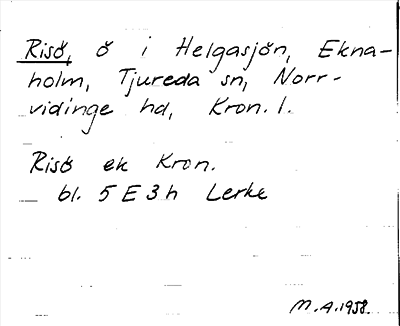 Risö, ö i Helgasjön, Ekna-
holm, Tjureda sn, Norr-
vidinge hd, Kron. l.
Risö ek Kron.
bl. 5 E 3 h Lerke
M.A. 1958.